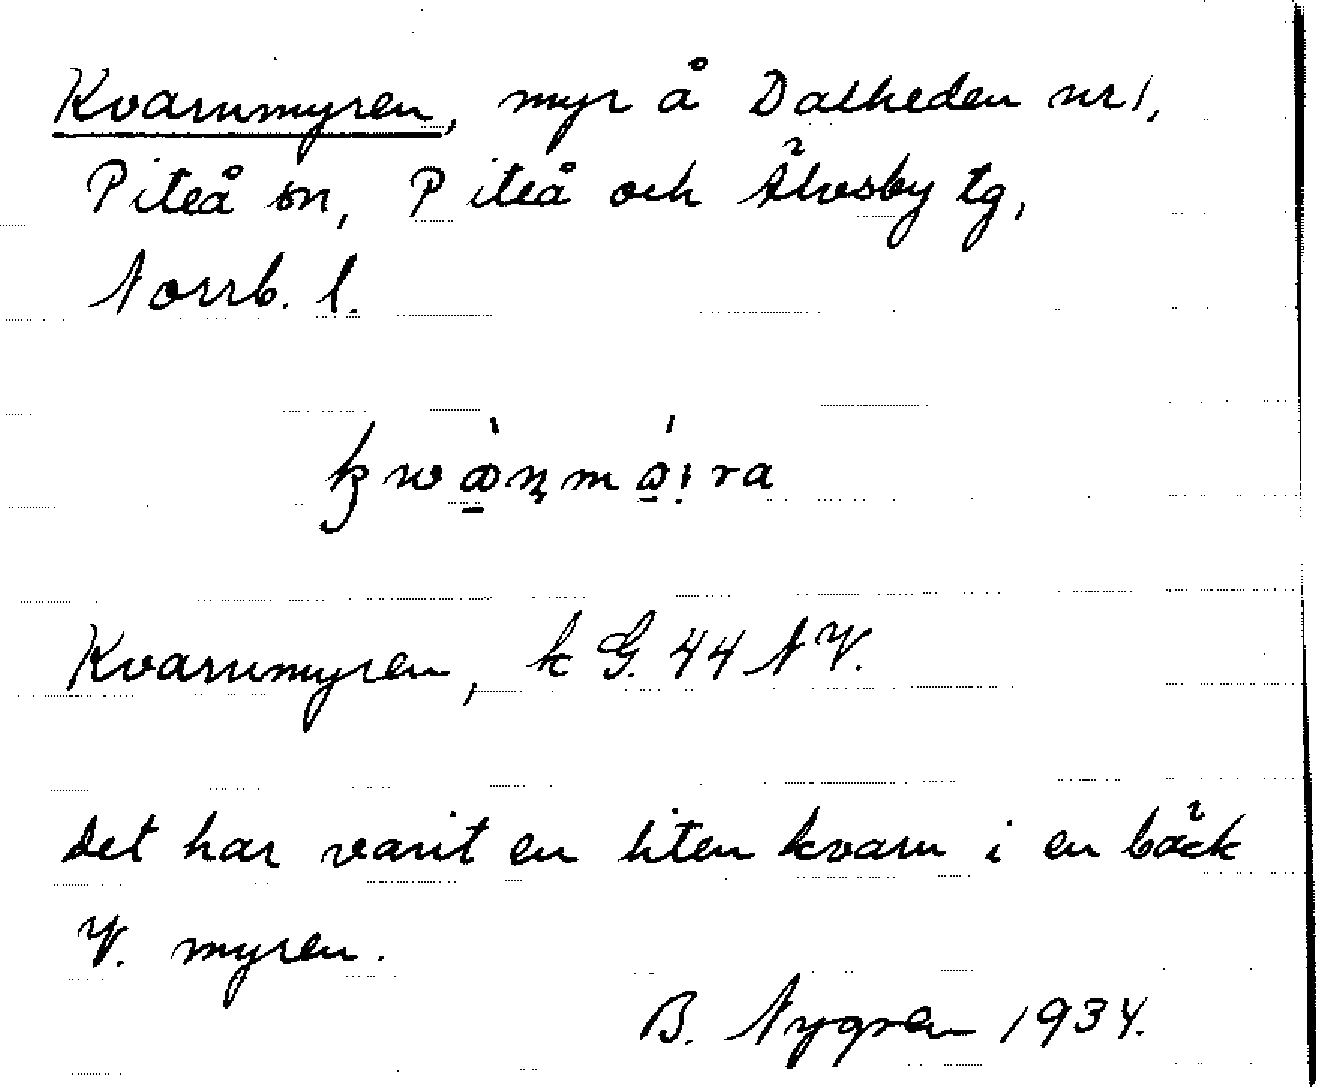 Kvarnmyren, myr å Dalheden nr 1,
Piteå sn, Piteå och Älvsby tg,
Norrb. l.
Kvarnmyren, k G. 44 NV.
Det har varit en liten kvarn i en bäck
V. myren.
B. Nygren 1934.